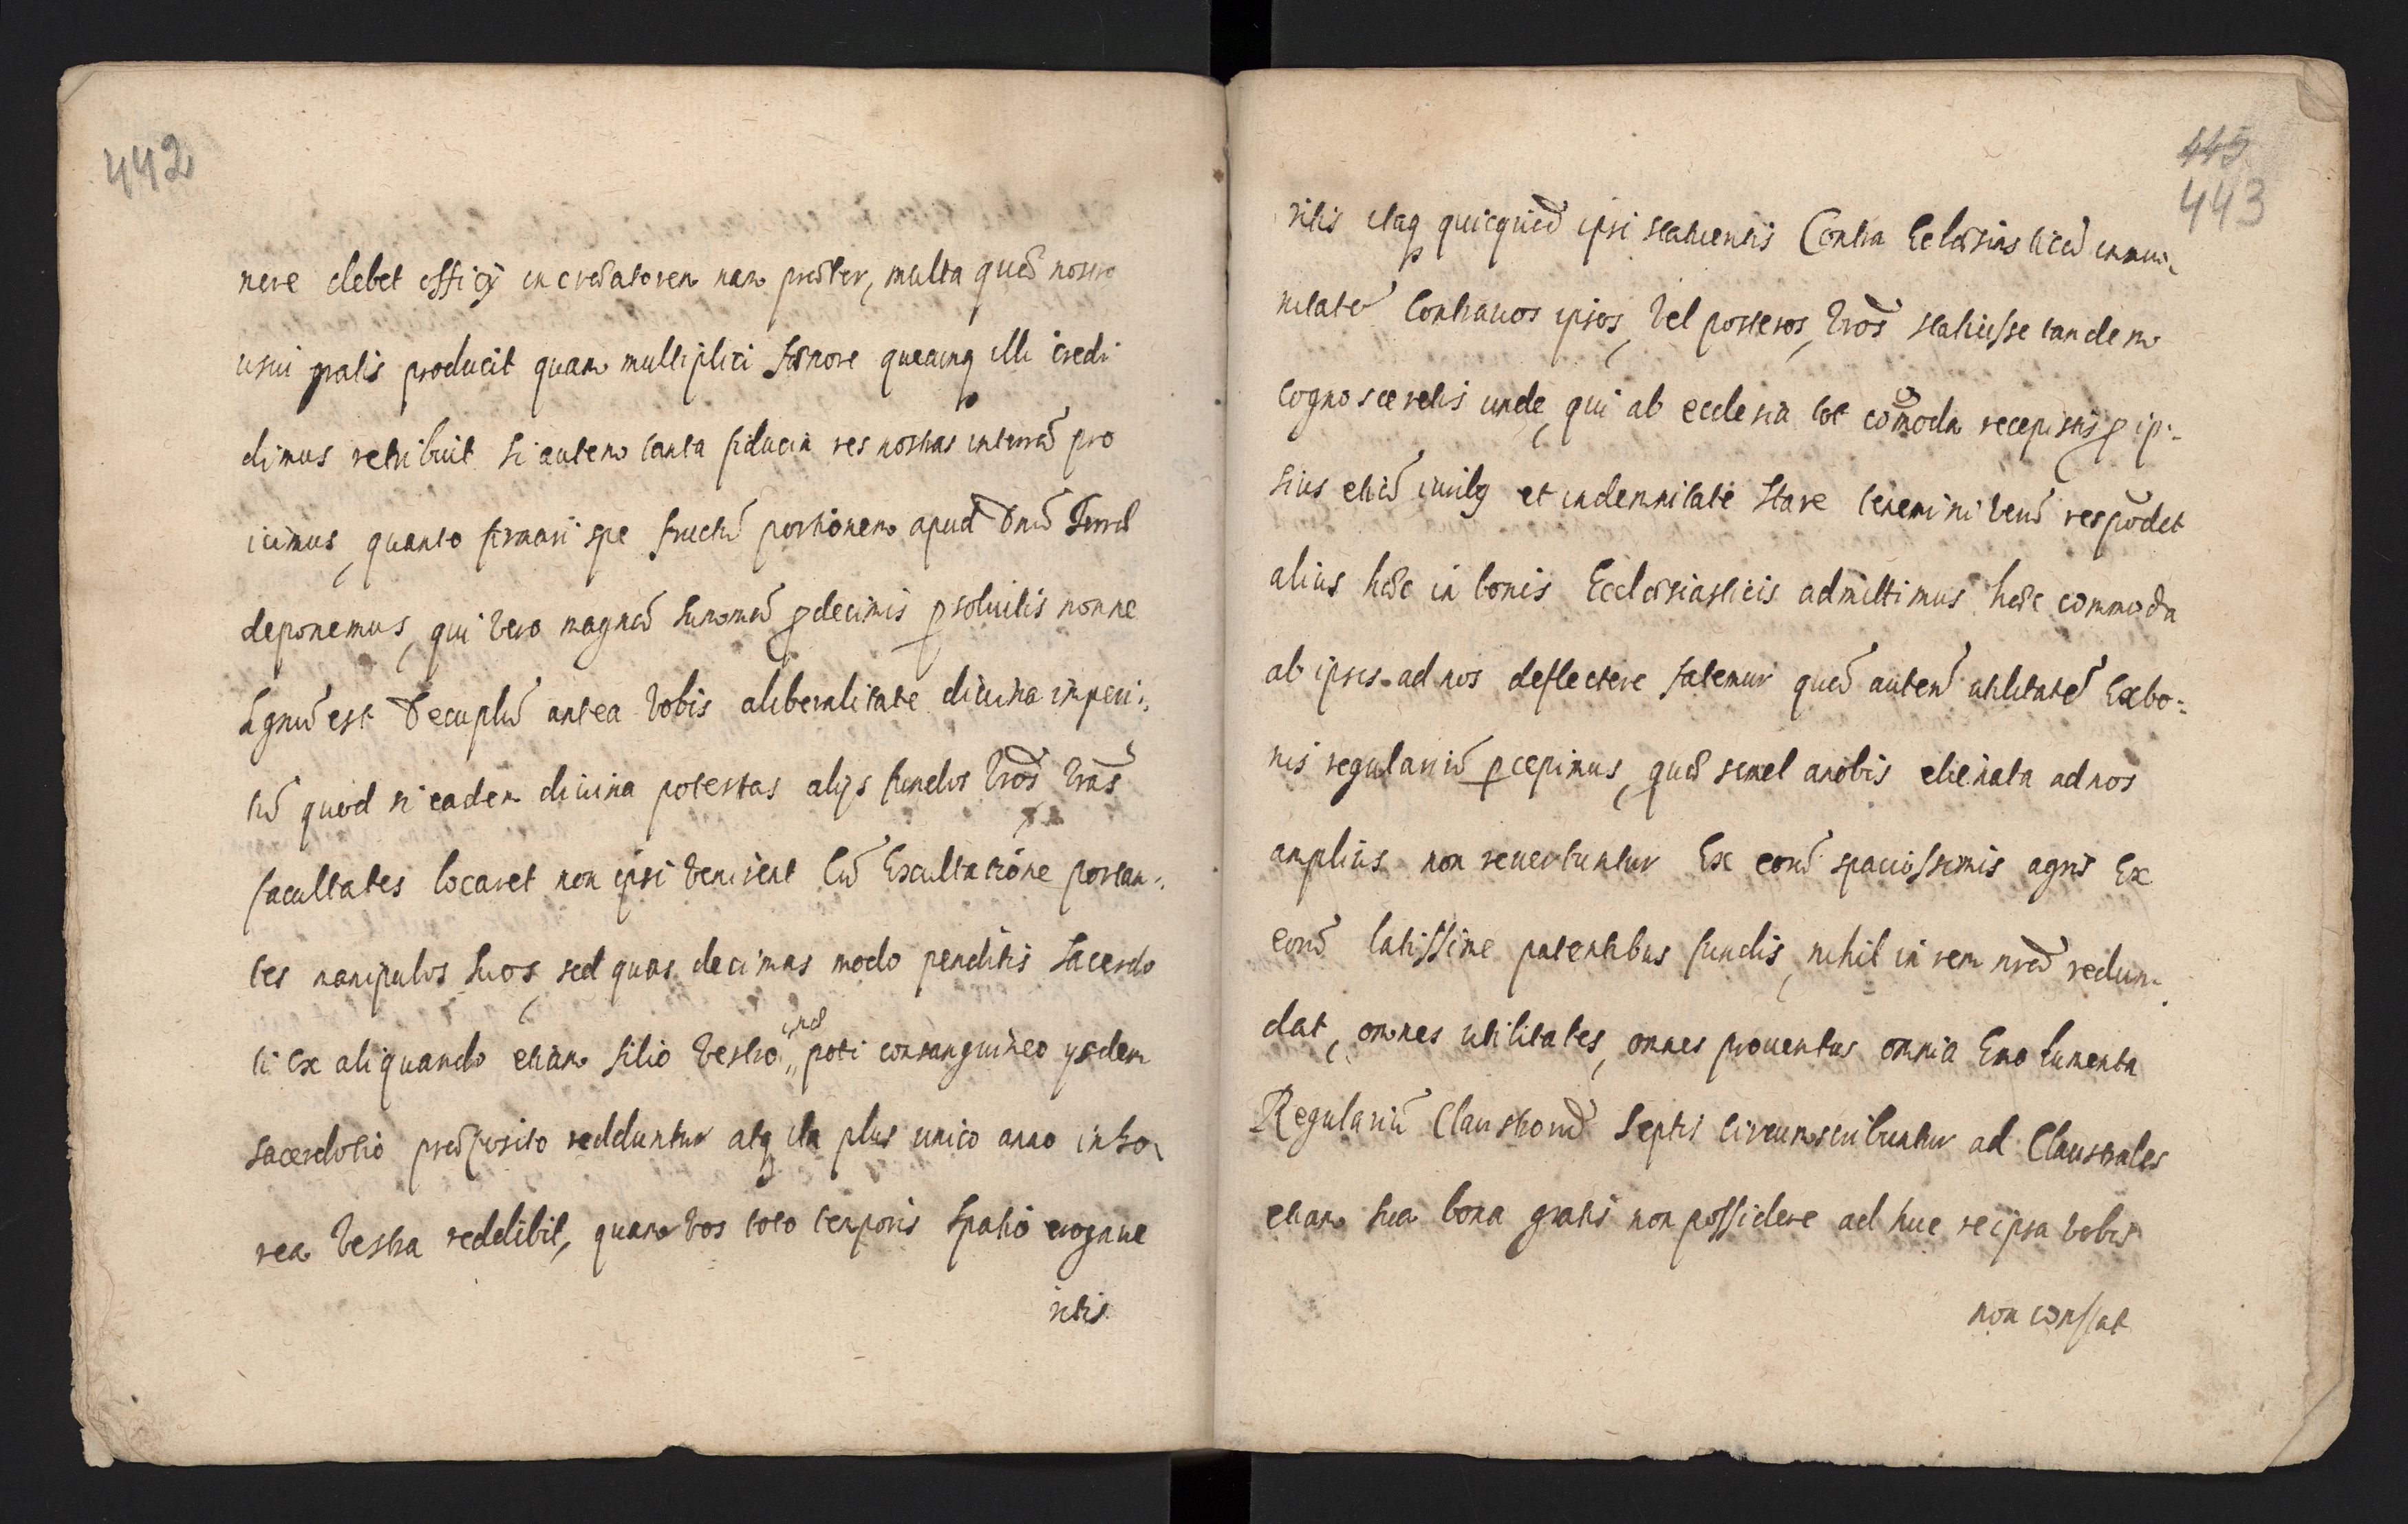 442
nere debet officij in creātorem nam prēter, multa quē nostro
usui gratis producit quam multiplici fēnore quecunq illi credi
dimus retribuit si autem tanta fiducia res nostras in terrā pro
icimus, quanto firmiori spe fructū portionem apud Dnū
deponemus, qui vero magnā summā p decimis psoluitis nonne
Lgnū est Decuplū antea vobis a liberalitate diuina imperti:
tū quod si eadem diuina potestas alijs fundos vrōs vrās
facultates locaret non ipsi venirent Cū Excultatione portan:
tes manipulos suos, sed quas decimas modo penditis Sacerdo
ti Ex aliquando etiam filio vestro, uel poti consanguineo ysdem
sacerdotio prēposito redduntur atq ita plus unico anno in ho
rea vestra reddibit, quam vos toto temporis spatio erogaue
ritis
445
443
ritis itaq quicquid ipsi statuentis Contra Eclēsiasticā immu
nitatē Contra uos ipsos, vel posteros, vrōs statuisse tandem
cognosceretis unde, qui ab ecclesia tot cōmoda recepistis p ip:
sius etiā iurib9 et indemnitate stare tenemini verū respōdet
alius hēc in bonis Ecclēsiasticis admittimus hēc commoda
ab ipsis ad nos deflectere fatemur quā autem utilitatē Ex bo:
nis regulariū pcepimus, quē semel a nobis elienata ad nos
amplius non reuertuntur Ex eorū spaciossimis agris Ex
eorū latissime patentibus fundis, nihil in rem nrā redun
dat, omnes utilitates, omnes prouentus omnia Emolumenta
Regulariū Claustrorū septis circumscribuntur ad Claustrales
etiam sua bona gratis non possidere ad huc re ipsa vobis
non constat